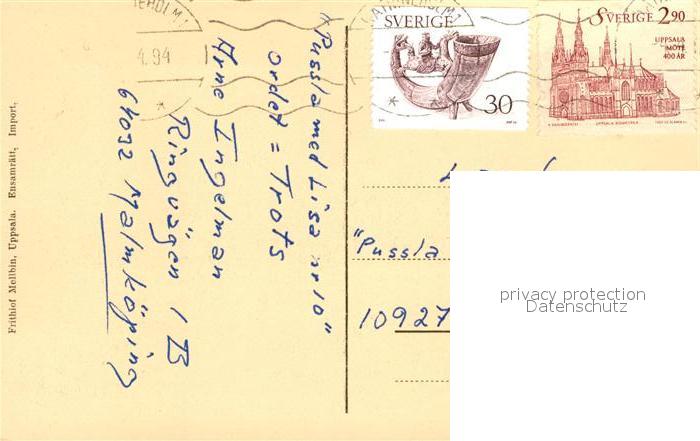 "Pussla med Lisa nr 10"
ordet = Trots
Arne Ingelman
Ringvägen 1 B
64032 Malmköping
Frithiof Mellbin, Uppsala. Ensamrätt, Import.
4.94
SVERIGE
30
SVERIGE 2 90
UPPSALA
MÖTE
400 ÅR
"Pussla
10927
privacy protection
Datenschutz